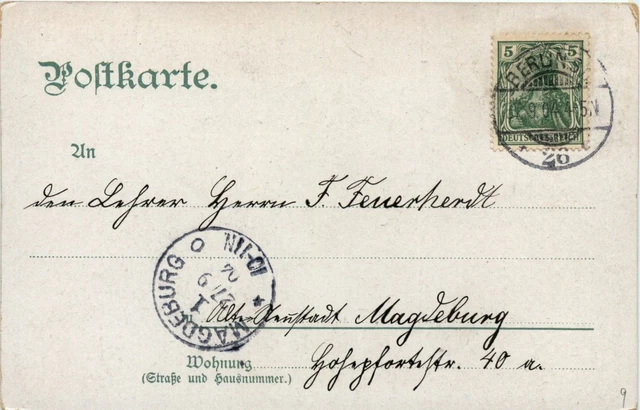 5 5
BERLIN S
DEUTSCHES REICH
26
Postkarte.
An
den Lehrer Herrn F. Feuerherdt
MAGDEBURG
1
27/9
04
10-11N
Alte Neustadt Magdeburg
Wohnung
(Straße und Hausnummer.)
Hohepfortestr. 40 a.
9